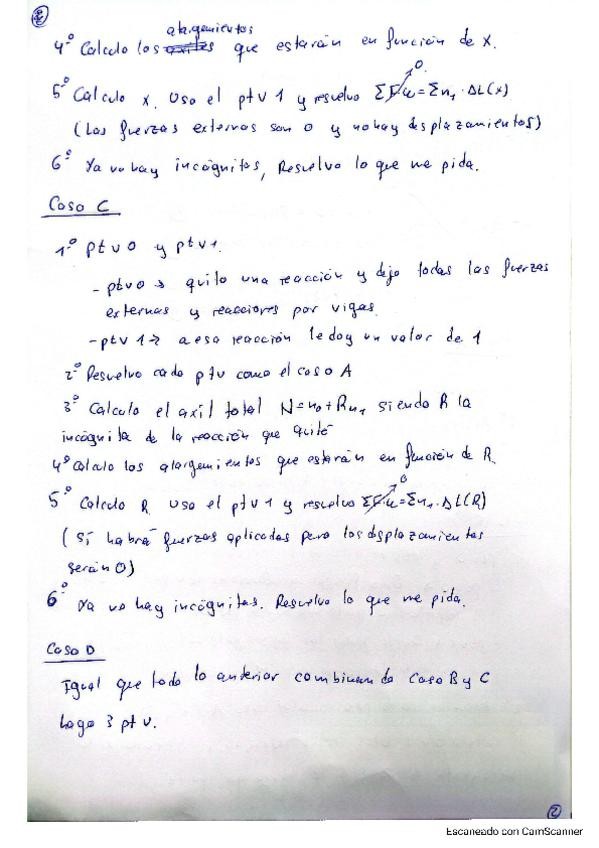 2
alargamientos
4º Calculo los axiles que estarán en función de x.
5º Calculo x. Uso el ptv 1 y resuelvo ΣF·u=Σn₁·ΔL(x)
0
(Las fuerzas externas son 0 y no hay desplazamientos)
6º Ya no hay incógnitas, Resuelvo lo que me pida.
Caso C
1º ptv0 y ptv1.
- ptv0 → quito una reacción y dejo todas las fuerzas
externas y reacciones por vigas.
- ptv1 → a esa reacción le doy un valor de 1
2º Resuelvo cada ptv como el caso A
3º Calculo el axil total N=n₀+Rn₁ siendo R la
incógnita de la reacción que quité
4º Calculo los alargamientos que estarán en función de R.
0
5º Calculo R uso el ptv1 y resuelvo ΣF·u=Σn₁·ΔL(R)
(Sí habrá fuerzas aplicadas pero los dsplazamientos
serán 0)
6º Ya no hay incógnitas. Resuelvo lo que me pida.
Caso D
Igual que todo lo anterior combinando caso B y C
hago 3 ptv.
2
Escaneado con CamScanner